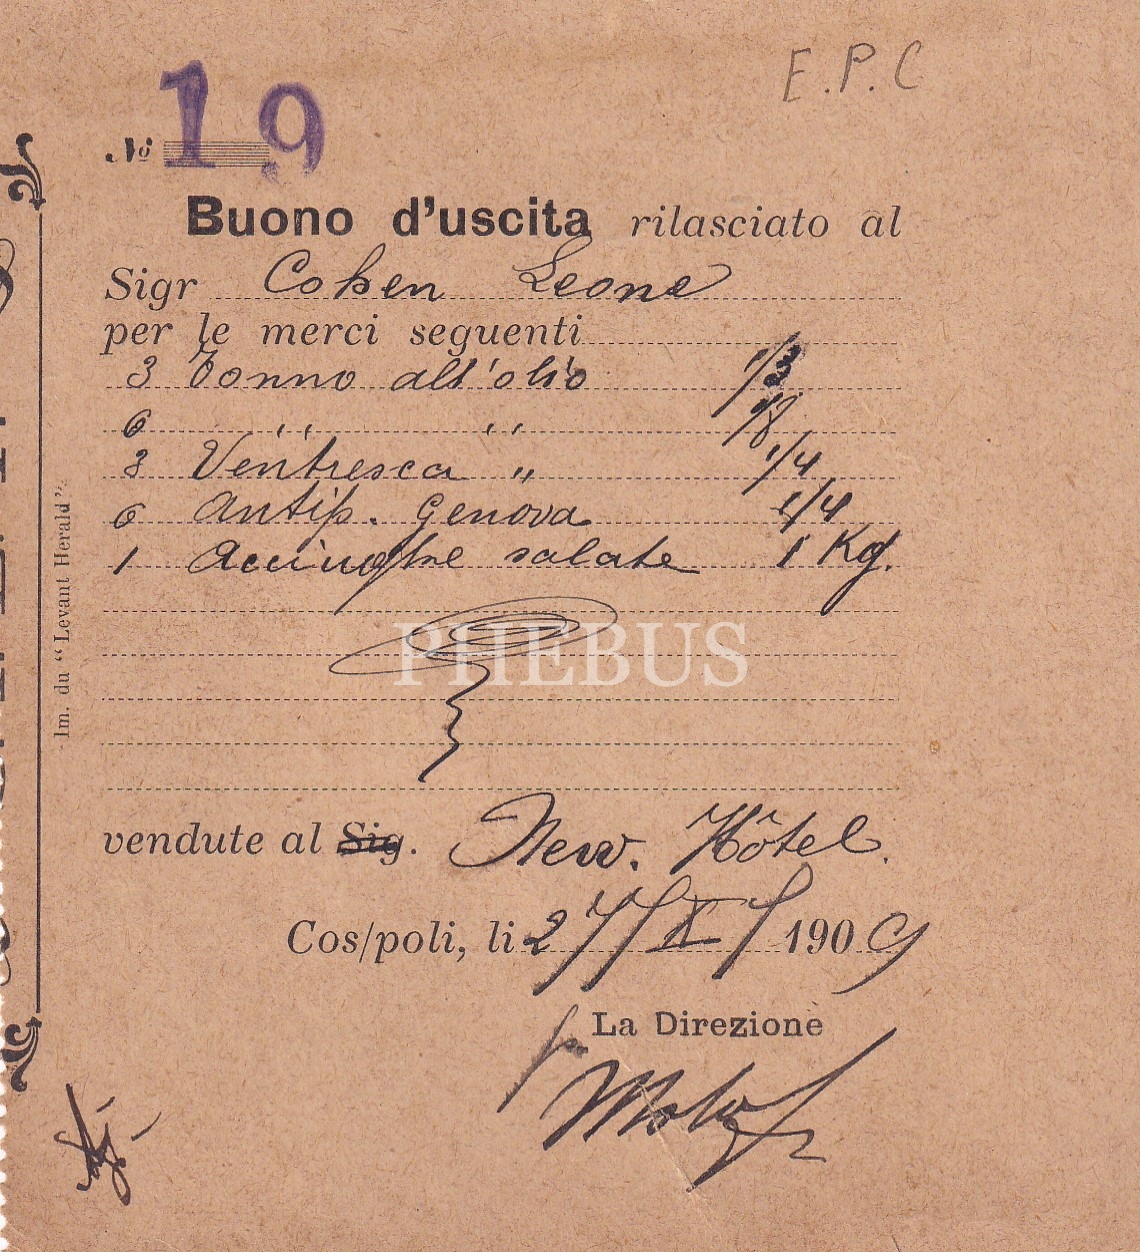 E.P.C
No 19
Buono d'uscita rilasciato al
Sigr Cohen Leone
per le merci seguenti
3 Tonno all'olio 1/3
6 " " 1/8
3 Ventresca " 1/4
6 Antip. Genova 1/4
1 Acciughe salate 1 Kg.
PHEBUS
vendute al Sig. New. Hôtel.
Cos/poli, li 27/X/1909
La Direzione
Im. du "Levant Herald".